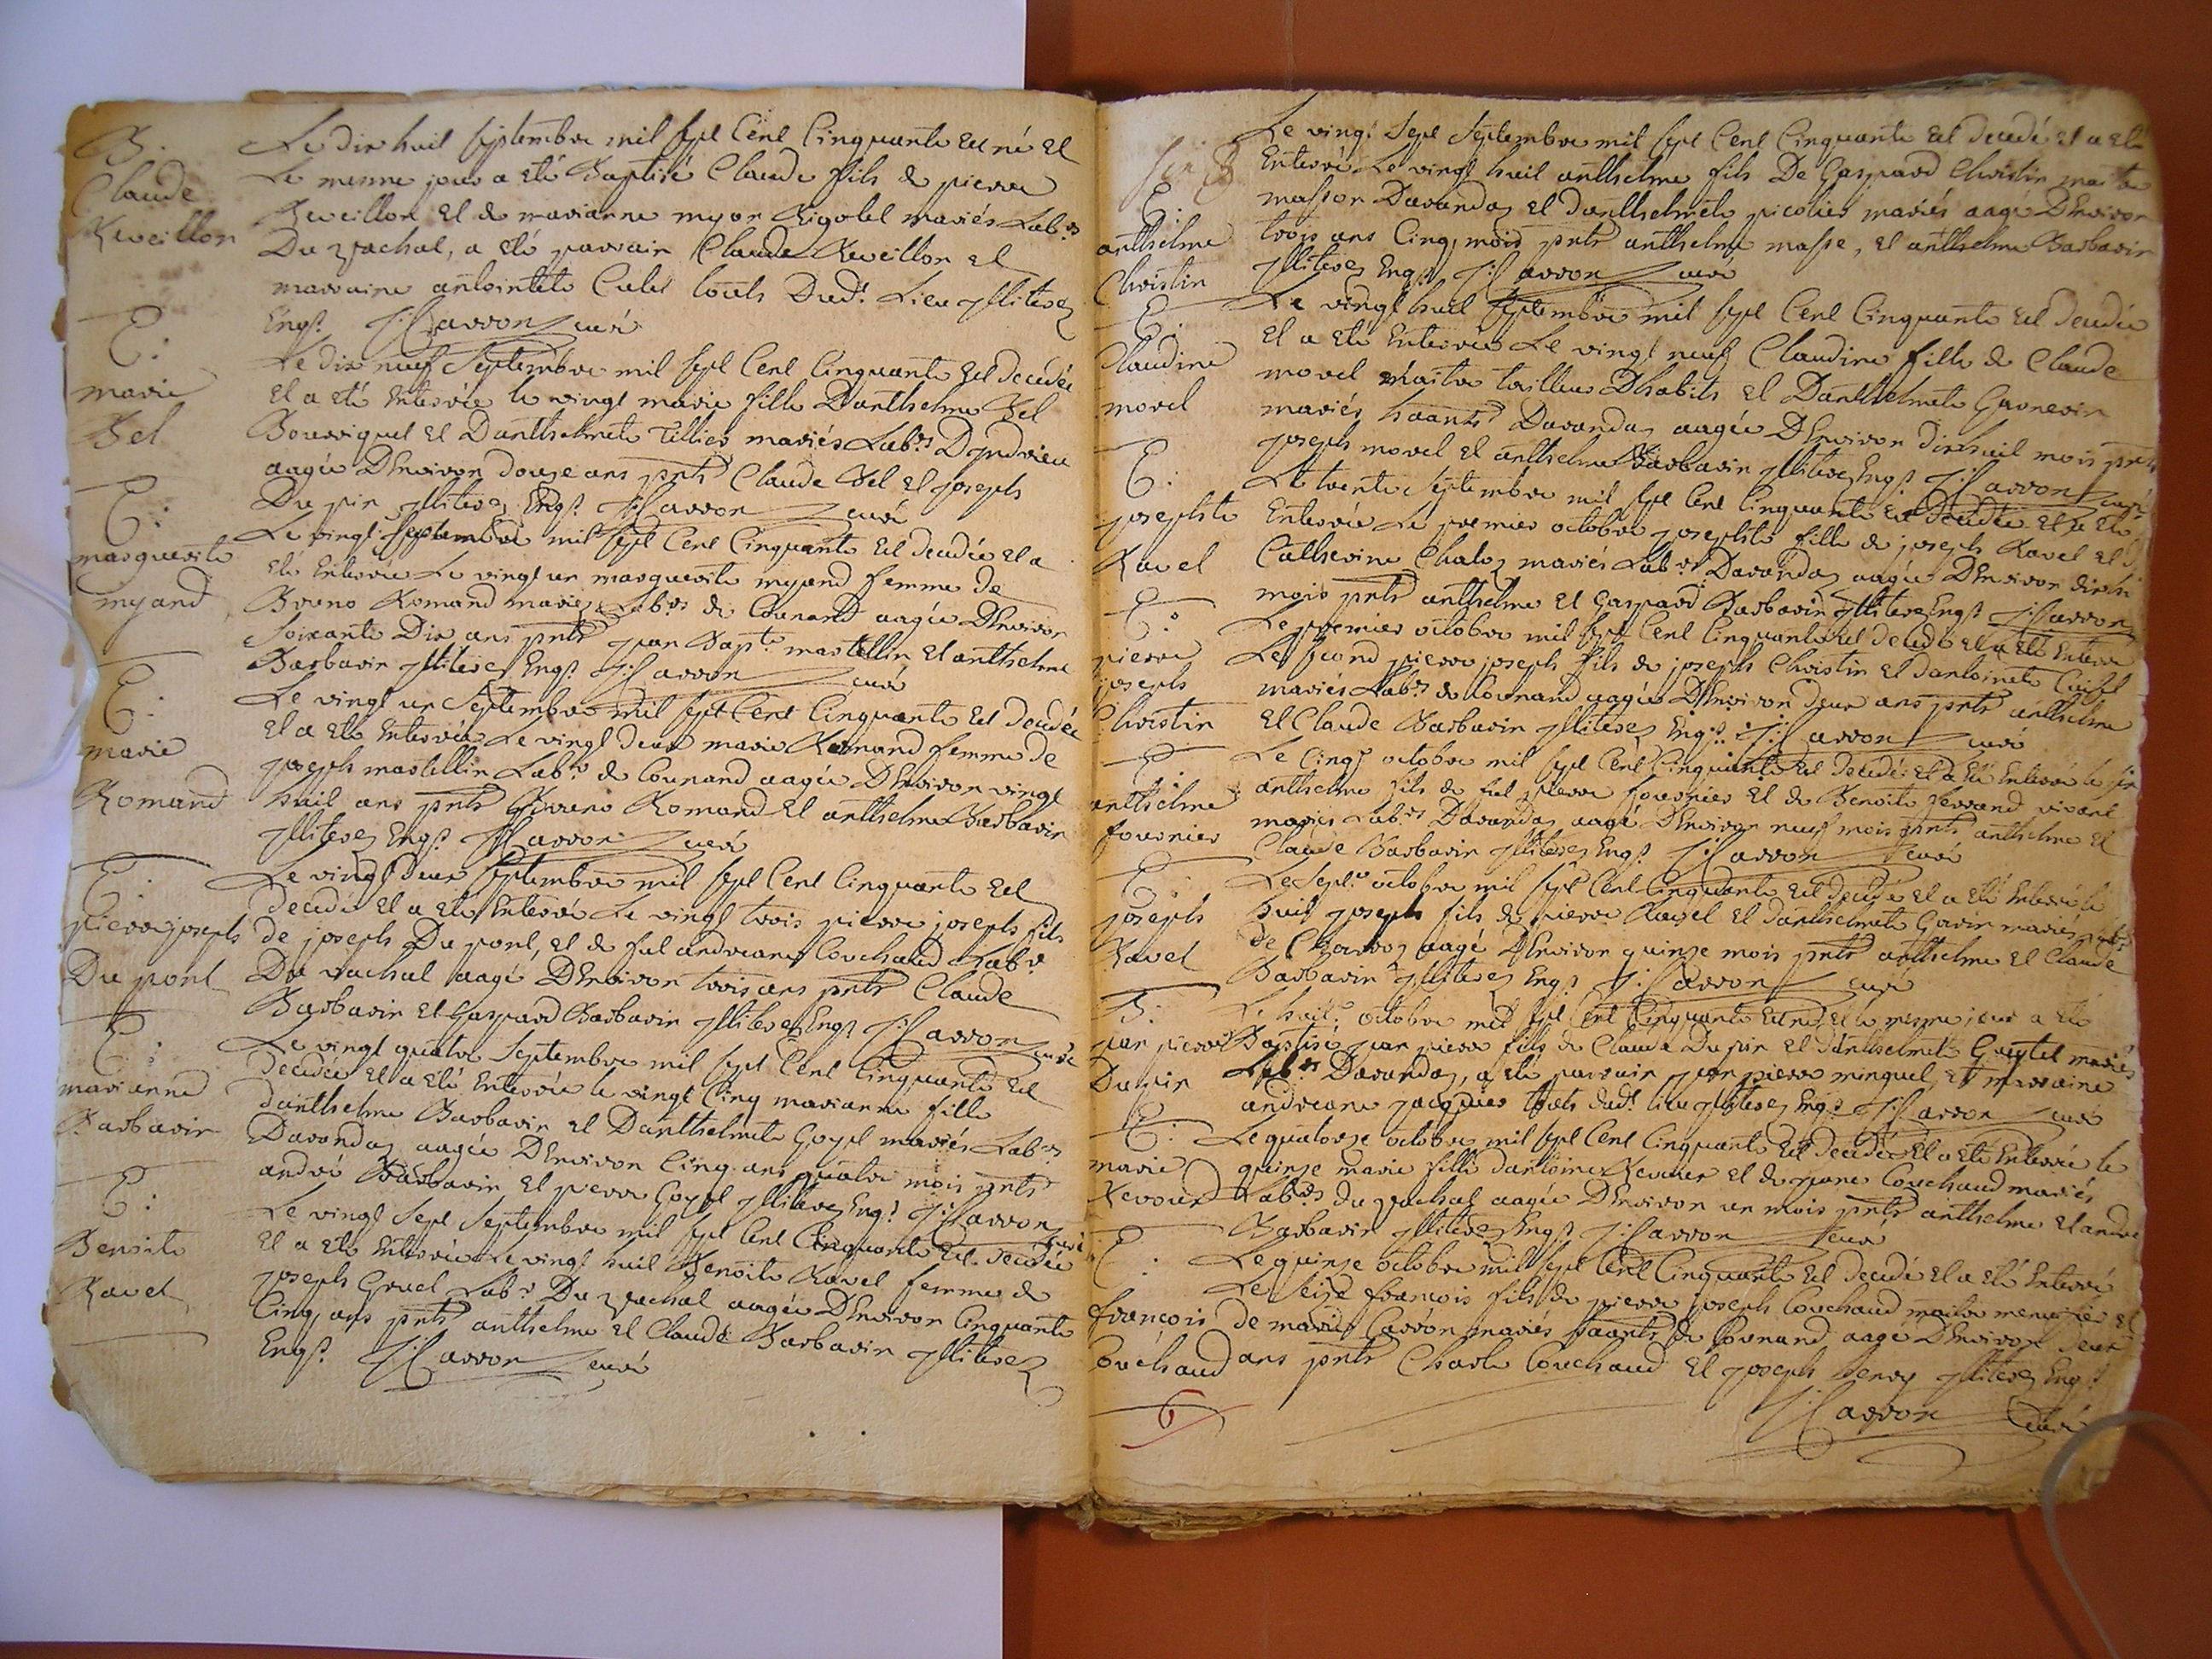 B.
Claude
Reveillon
Le dix huit septembre mil sept Cent Cinquante Est né Et
Le meme jour a eté Baptisé Claude fils de pierre
Reveillon Et de marianne myor Rigolet mariés Lab.rs
Du vachat, a eté parrain Claude Reveillon Et
marraine antointete Culet touts Dud.t Lieu jlliteres
Enq.s J: Carron curé
E:
marie
Bel
Le dix neuf Septembre mil sept Cent Cinquante Est decedée
Et a eté Enterrée le vingt marie fille Danthelme Bel
Bourriquet Et Danthelmete Tillier mariés Lab.rs Dyndrieu
aagée DEnviron douze ans pnts Claude Bel Et joseph
Du pin jlliteres Enq.s J: Carron curé
E:
marguerite
myand
Le vingt septembre mil sept Cent Cinquante Est decedée Et a
eté Enterrée Le vingt un marguerite myand femme de
Bruno Romand mariés Lab.rs de Counand aagée DEnviron
Soixante Dix ans pnts jean Bap.te mastellin Et anthelme
Barbarin jlliteres Enq.s J: Carron curé
E:
marie
Romand
Le vingt un Septembre mil sept Cent Cinquante Est decedée
Et a eté Enterrée Le vingt deux marie Romand femme de
joseph mastellin Lab.r de Counand aagée DEnviron vingt
huit ans pnts Romand Et anthelme Barbarin
jlliteres Enq.s J: Carron curé
E:
pierre joseph
Du pont
Le vingt deux Septembre mil sept Cent Cinquante Est
decedé Et a eté Enterré Le vingt trois pierre joseph fils
de joseph Du pont, Et de fut andreane Couchaud Lab.r
Du vachat aagé DEnviron trois ans pnts Claude
Barbarin Et Gaspard Barbarin jlliteres Enq.s J: Carron curé
E:
marianne
Barbarin
Le vingt quatre Septembre mil sept Cent Cinquante Est
decedée Et a eté Enterrée le vingt Cinq marianne fille
danthelme Barbarin Et Danthelmete Goyet mariés Lab.rs
Darandas aagée DEnviron Cinq ans quatre mois pnts
andré Barbarin Et pierre Goyet jlliteres Enq.s J: Carron curé
E:
Benoite
Ravet
Le vingt Sept Septembre mil sept Cent Cinquante Est decedée
Et a eté Enterrée Le vingt huit Benoite Ravet femme de
joseph Gruel Lab.r Du vachat aagée DEnviron Cinquante
Cinq ans pnts anthelme Et Claude Barbarin jlliteres
Enq.s J: Carron curé
E:
anthelme
Christin
Le vingt Sept Septembre mil sept Cent Cinquante Est decedé Et a eté
Enterré Le vingt huit anthelme fils De Gaspard Christin maitre
masson Darandas Et danthelmete picolier mariés aagé DEnviron
trois ans Cinq mois pnts anthelme masse, Et anthelme Barbarin
jlliteres Enq.s J: Carron curé
E:
Claudine
morel
Le vingt huit Septembre mil sept Cent Cinquante Est decedée
Et a eté Enterrée Le vingt neuf Claudine fille de Claude
morel maitre tailleur Dhabits Et Danthelmete Garnerin
mariés haants Darandas aagée DEnviron dixhuit mois pnts
joseph morel Et anthelme Barbarin jlliteres Enq.s J: Carron curé
E:
josephte
Ravet
Le trente Septembre mil sept Cent Cinquante Est decedée Et a eté
Enterrée Le premier octobre josephte fille de joseph Ravet Et de
Catherine Chatos mariés Lab.rs Darandas aagée DEnviron dixhuit
mois pnts anthelme Et Gaspard Barbarin jlliteres Enq.s J: Carron
E:
pierre
joseph
Christin
Le premier octobre mil sept Cent Cinquante Est decedé Et a eté Enterré
Le second pierre joseph fils de joseph Christin Et dantoinete
mariés Lab.rs de Counand aagé DEnviron deux ans pnts anthelme
Et Claude Barbarin jlliteres Enq.s J: Carron curé
E:
anthelme
fournier
Le Cinq octobre mil sept Cent Cinquante Est decedé Et a eté Enterré le six
anthelme fils de fut pierre fournier Et de Benoite ferrand vivant
mariés Lab.rs Darandas aagé DEnviron neuf mois pnts anthelme Et
Claude Barbarin jlliteres Enq.s J: Carron curé
E:
joseph
Ravet
Le Sept.e octobre mil sept Cent Cinquante Est decedé Et a eté Enterré le
huit joseph fils de pierre Ravet Et danthelmete Garin mariés
de aagé DEnviron quinze mois pnts anthelme Et Claude
Barbarin jlliteres Enq.s J: Carron curé
B:
jean pierre
Dupin
Le huit.e octobre mil sept Cent Cinquante Est né, Et le meme jour a eté
Baptisé jean pierre fils de Claude Dupin Et danthelmete mariés
Lab.rs Darandas, a eté parrain jean pierre minguet, Et marraine
andreane jacquier touts dud.t lieu jlliteres Enq.s J: Carron curé
E:
marie
Revour
Le quatorze octobre mil sept Cent Cinquante Est decedée Et a eté Enterrée le
quinze marie fille dantoine Revour Et de jeane Couchaud mariés
Lab.rs du vachat aagée DEnviron un mois pnts anthelme Et andré
Barbarin jlliteres Enq.s J: Carron curé
E:
françois
Couchaud
Le quinze octobre mil sept Cent Cinquante Est decedé Et a eté Enterré
Le seize francois fils de pierre joseph Couchaud maitre menuisier Et
de marie Carron mariés haants de Counand aagé DEnviron deux
ans pnts Charle Couchaud Et joseph henry jlliteres Enq.s
J: Carron curé
6